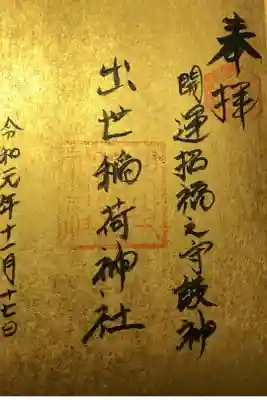 奉拝
開運招福之守護神
出世稲荷神社
令和元年十一月十七日